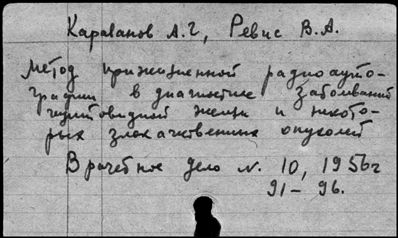 Караванов А.Г, Ревис В.А.
Метод прижизненной радиоауто-
графии в диагностике заболеваний
щитовидной железы и некото-
рых злокачественных опухолей
Врачебное дело N. 10, 1956г
91 – 96.